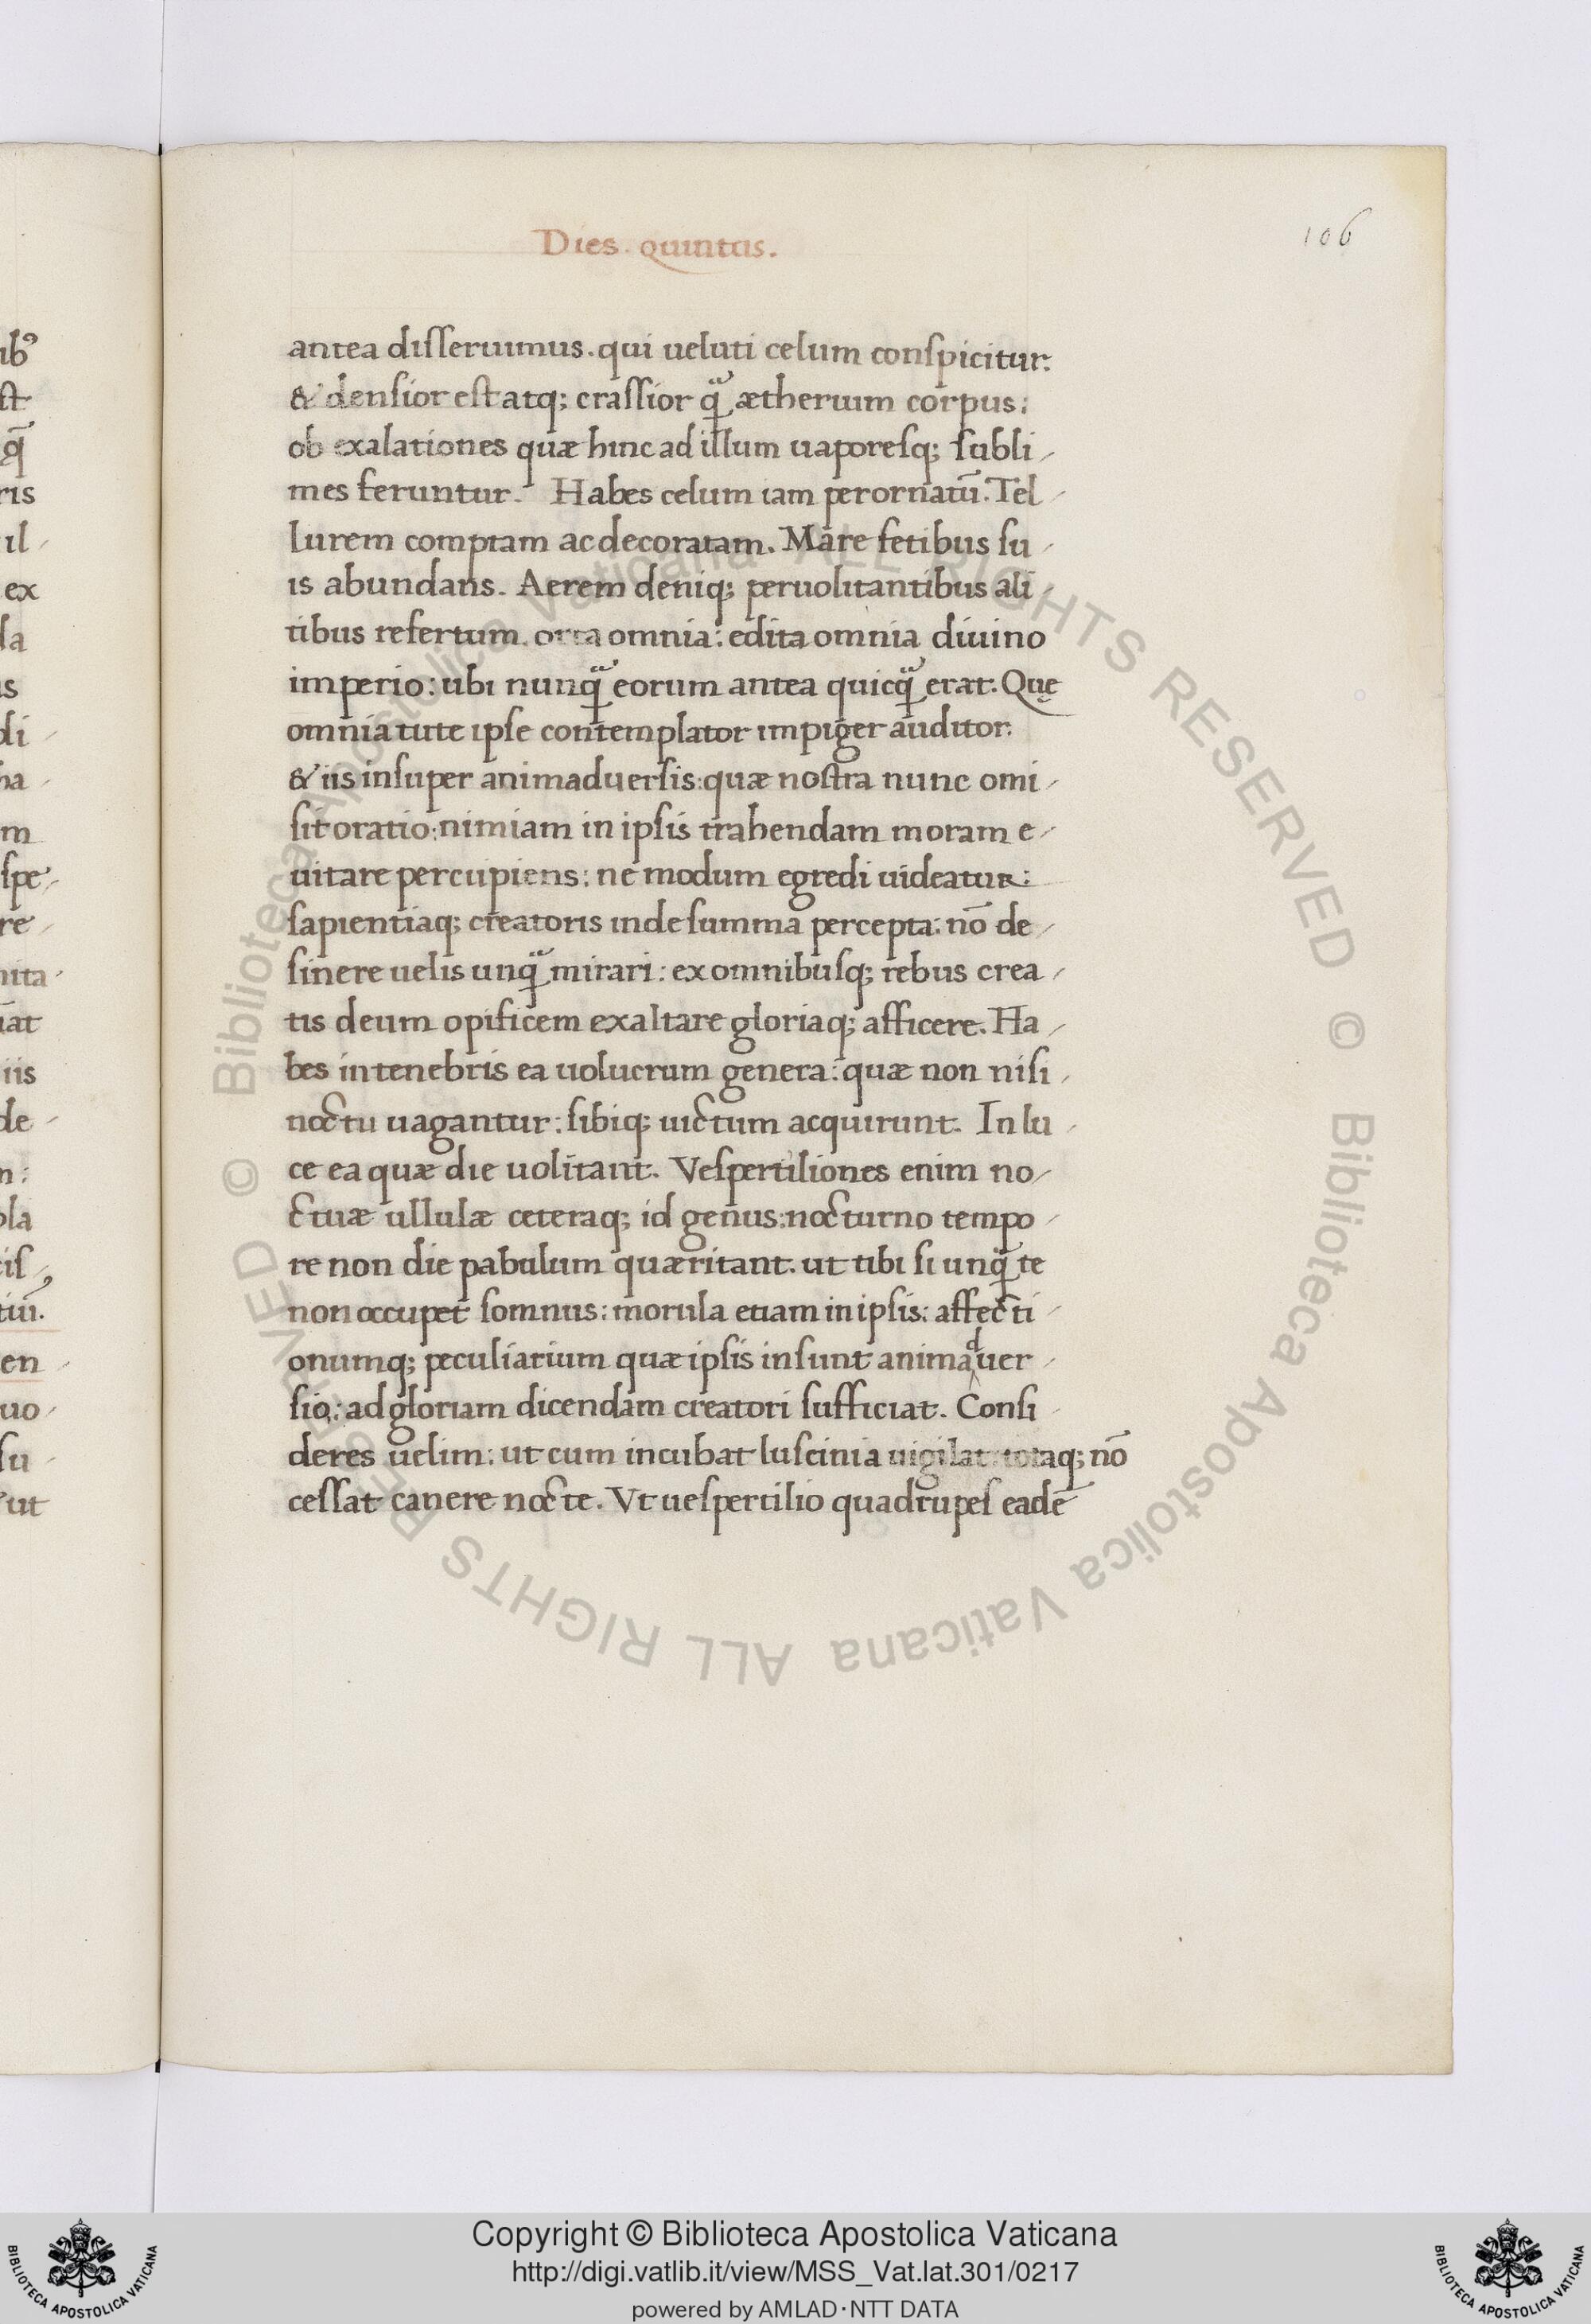 Dies. quintus.
106
antea disseruimus. qui ueluti celum conspicitur.
& densior est atq; crassior qͣ̃ ætherium corpus:
ob exalationes quæ hinc ad illum uaporesq; subli
mes feruntur. Habes celum iam perornatū. Tel
lurem comptam ac decoratam. Mare fetibus su
is abundans. Aerem deniq; peruolitantibus ali
tibus refertum. orta omnia: edita omnia diuino
imperio: ubi nunqͣ̃ eorum antea quicqͣ̃ erat. Quę
omnia tute ipse contemplator impiger auditor.
& iis insuper animaduersis: quæ nostra nunc omi
sit oratio: nimiam in ipsis trahendam moram e
uitare percupiens: ne modum egredi uideatur:
sapientiaq; creatoris inde summa percepta: nō de
sinere uelis unqͣ̃ mirari: ex omnibusq; rebus crea
tis deum opificem exaltare gloriaq; afficere. Ha
bes in tenebris ea uolucrum genera: quæ non nisi
noctu uagantur: sibiq; uictum acquirunt. In lu
ce ea quæ die uolitant. Vespertiliones enim no
ctuæ ullulæ ceteraq; id genus: nocturno tempo
re non die pabulum quæritant. ut tibi si unqͣ̃ te
non occupet somnus: morula etiam in ipsis: affecti
onumq; peculiarium quæ ipsis insunt animaduer
sio: ad gloriam dicendam creatori sufficiat. Consi
deres uelim: ut cum incubat luscinia uigilat: totaq; nō
cessat canere nocte. Vt uespertilio quadrupes eadē
ib⁹
st
q̃
ris
il
ex
la
us
di
na
m
spe
re
nita
iis
de
n:
ola
cis
tiū.
en
uo
su
ut
© Biblioteca Apostolica Vaticana ALL RIGHTS RESERVED © Biblioteca Apostolica Vaticana ALL RIGHTS RESERVED
Copyright © Biblioteca Apostolica Vaticana
http://digi.vatlib.it/view/MSS_Vat.lat.301/0217
powered by AMLAD·NTT DATA
BIBLIOTECA APOSTOLICA VATICANA
BIBLIOTECA APOSTOLICA VATICANA